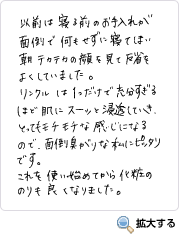 以前は寝る前のお手入れが
面倒で何もせずに寝てしまい
朝テカテカの顔を見て反省を
よくしていました。
リンクルは1つだけで充分すぎる
ほど肌にスーッと浸透していき、
とってもモチモチな感じになる
ので、面倒臭がりな私にピッタリ
です。
これを使い始めてから化粧の
のりも良くなりました。
拡大する